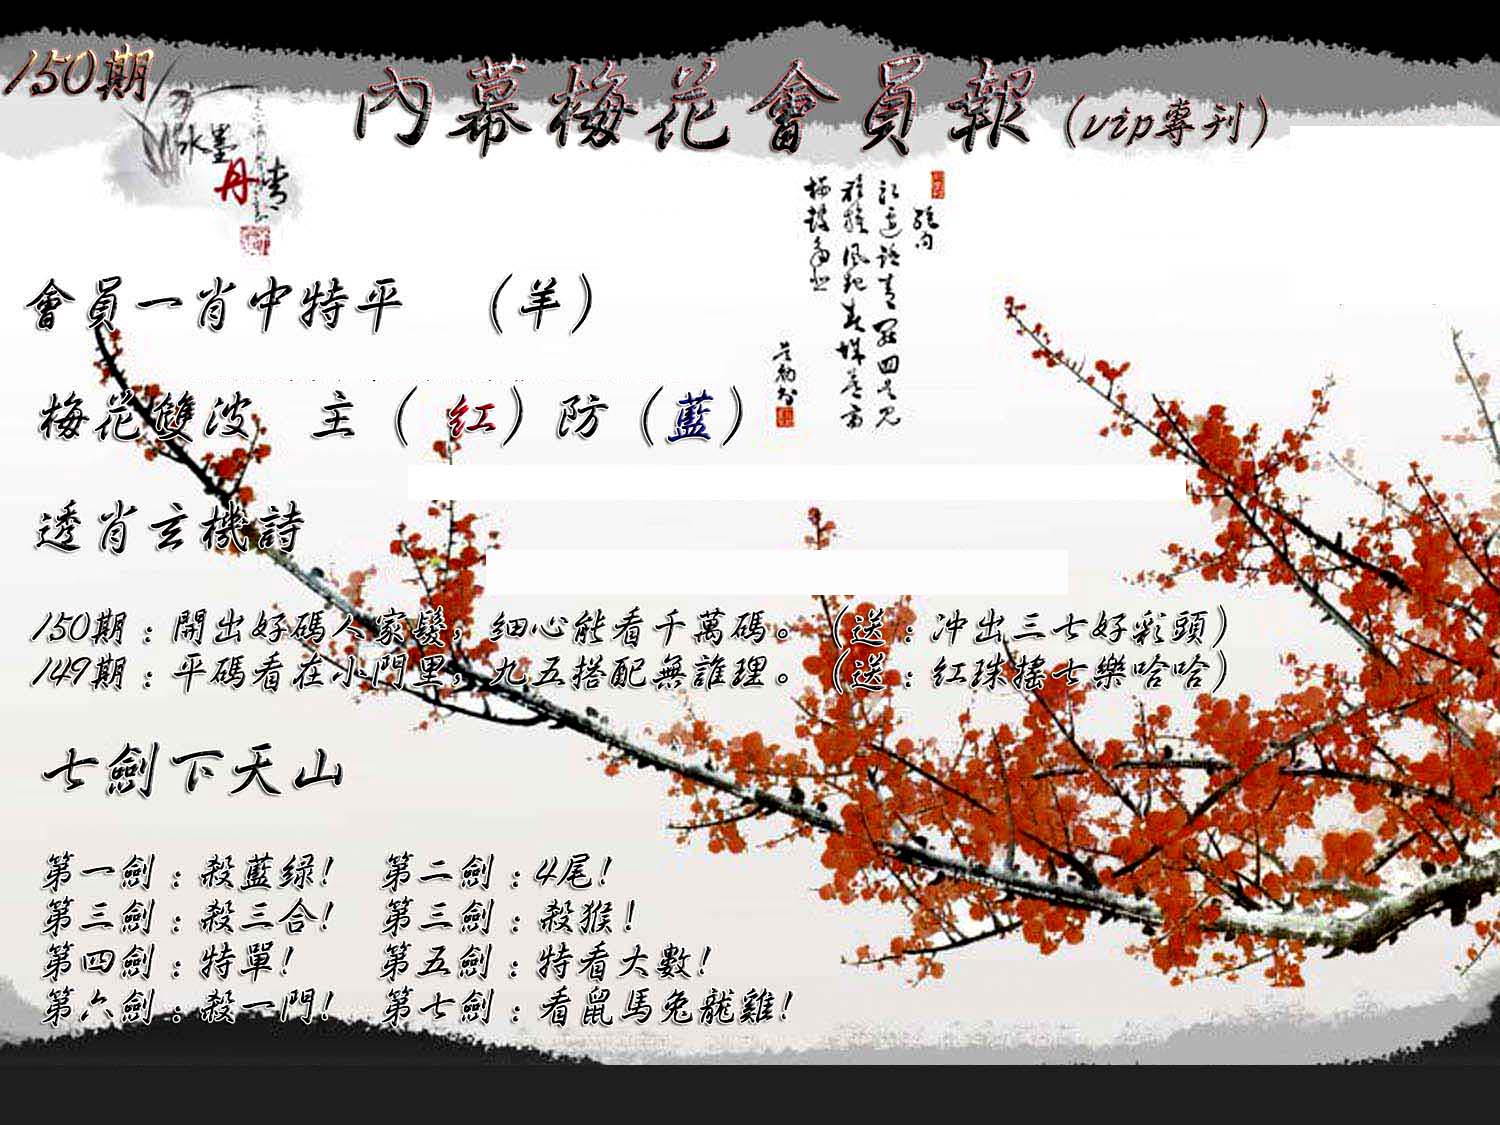 150期
內幕梅花會員報（vip專刊）
水墨
丹青
會員一肖中特平 （羊）
梅花雙波 主（紅）防（藍）
透肖玄機詩
150期：開出好碼人家髮，細心能看千萬碼。（送：冲出三七好彩頭）
149期：平碼看在小門里，九五搭配無誰理。（送：紅珠搖七樂哈哈）
七劍下天山
第一劍：殺藍绿! 第二劍：4尾!
第三劍：殺三合! 第三劍：殺猴!
第四劍：特單! 第五劍：特看大數!
第六劍：殺一門! 第七劍：看鼠馬兔龍雞!